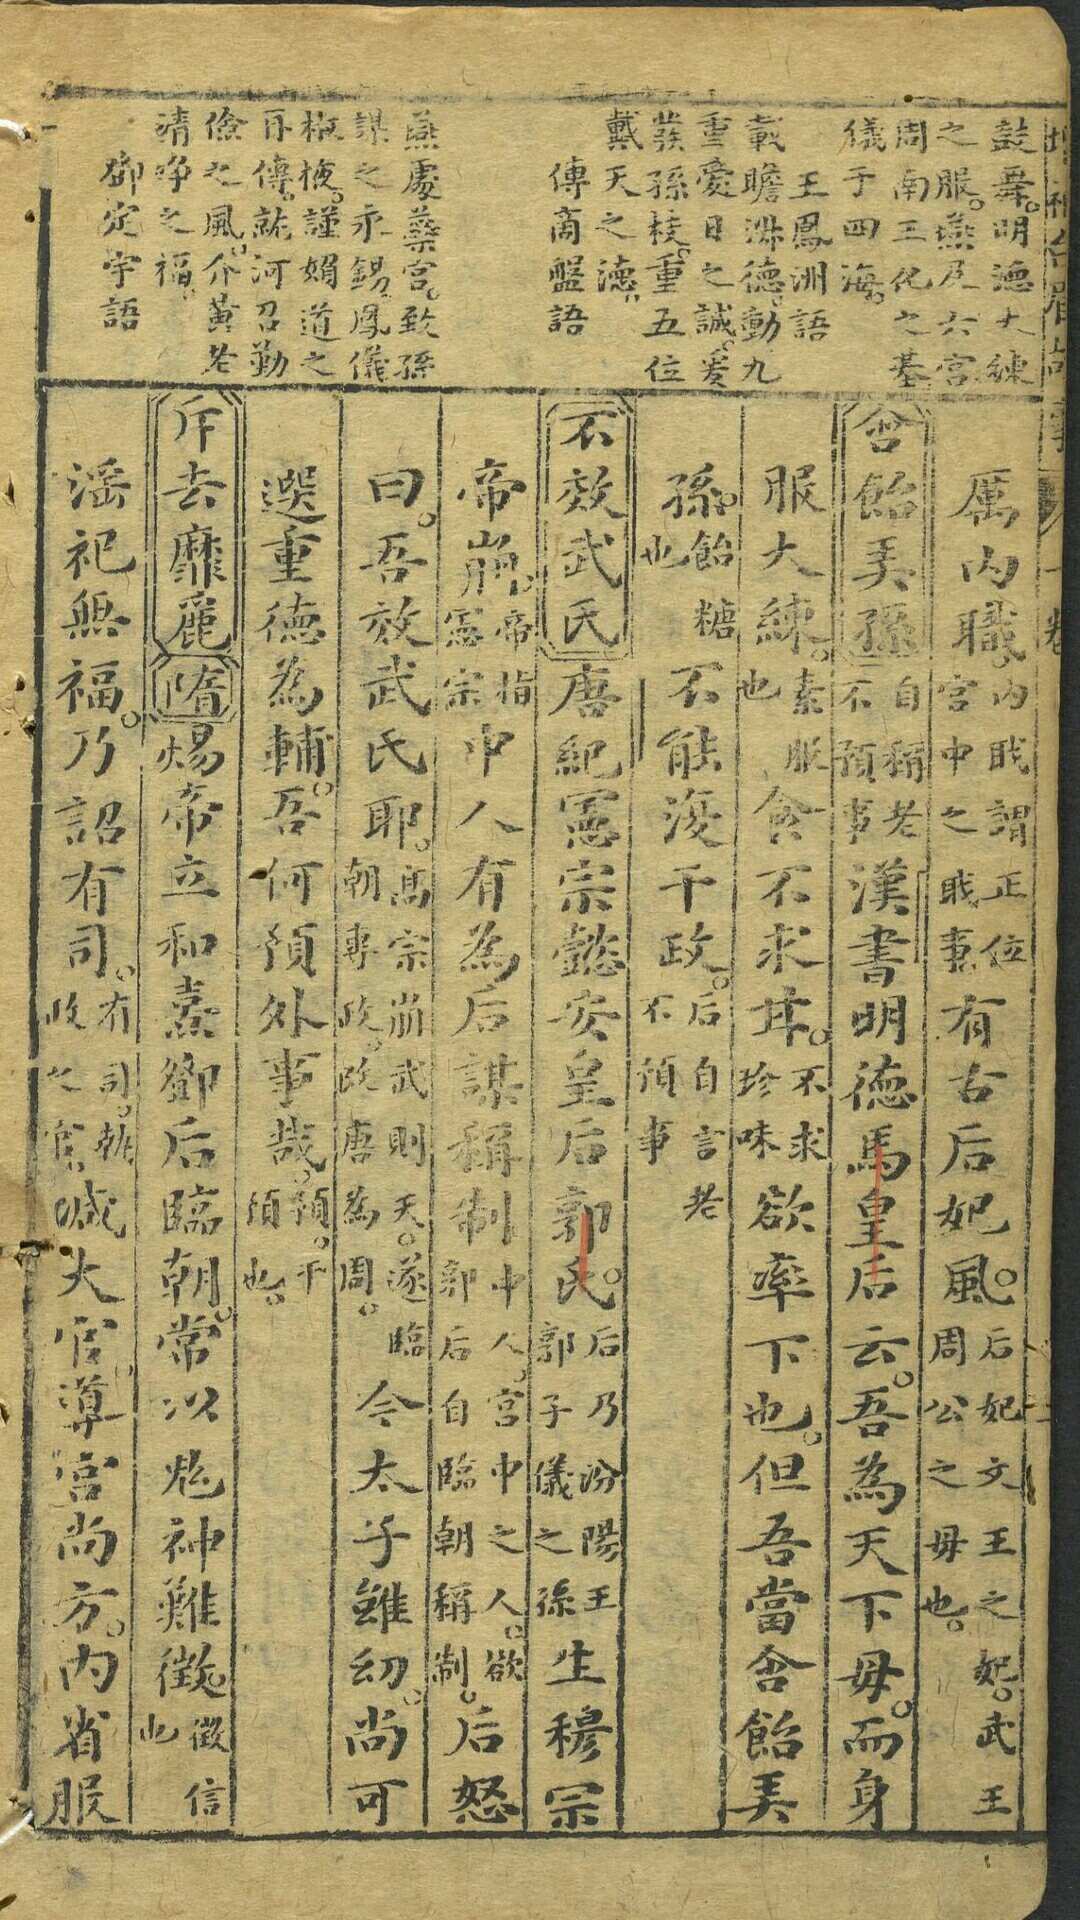 鼓舞明德大練
之服燕及六宮
周南王化之基
儀于四海
王鳳洲語
載瞻淋德動九
重愛日之誠爰
發孫枝重五位
戴天之德
傳商盤語
燕處蘂宮致孫
謀之永錫鳳儀
椒掖謹嫺道之
再傳詠河召勤
儉之風介黃老
清淨之福
鄧定宇語
厲內職內職謂正位宮中之職事有古后妃風后妃文王之妃武王周公之母也
含飴弄孫自稱老不預事漢書明德馬皇后云吾為天下母而身
服大練素服也食不求甘不求珍味欲率下也但吾當含飴弄
孫飴糖也不能復干政后自言老不預事
不效武氏唐紀憲宗懿安皇后郭氏后乃汾陽王郭子儀之孫生穆宗
帝崩帝指憲宗中人有為后謀稱制中人宮中之人欲郭后自臨朝稱制后怒
曰吾效武氏耶高宗崩武則天遂臨朝專政改唐為周今太子雖幼尚可
選重德為輔吾何預外事哉預干預也
斥去靡麗隋煬帝立和熹鄧后臨朝常以鬼神難徵徵信也
滛祀無福乃詔有司有司執政之官減大官導官尚方內省服